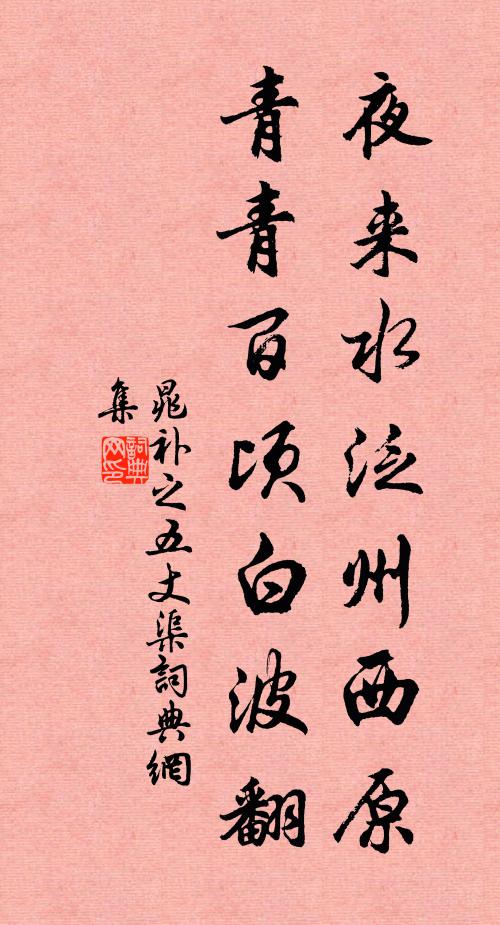 夜来水泛州西原
青青百頃白波翻
晁补之五丈渠詞典網
集
詞典
网印